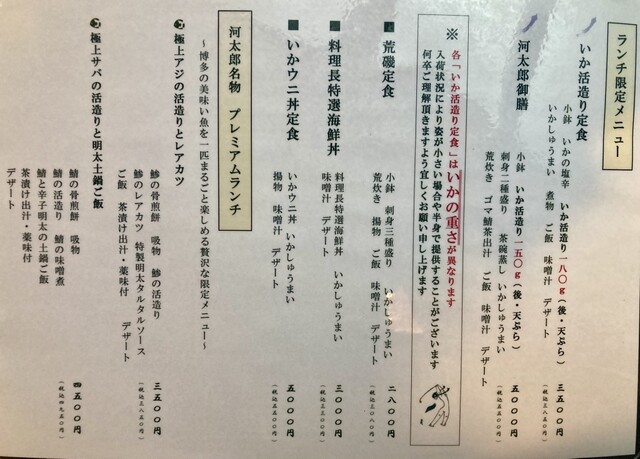 ランチ限定メニュー
いか活造り定食
小鉢 いかの塩辛 いか活造り一八〇g(後・天ぷら)
いかしゅうまい 煮物 ご飯 味噌汁 デザート
三五〇〇円
(税込三八五〇円)
河太郎御膳
小鉢 いか活造り一五〇g(後・天ぷら)
刺身二種盛り 茶碗蒸し いかしゅうまい
荒炊き ゴマ鯖茶出汁 ご飯 味噌汁 デザート
五〇〇〇円
(税込五五〇〇円)
※
各「いか活造り定食」はいかの重さが異なります
入荷状況により姿が小さい場合や半身で提供することがございます
何卒ご理解頂きますよう宜しくお願い申し上げます
■荒磯定食
小鉢 刺身三種盛り いかしゅうまい
荒炊き 揚物 ご飯 味噌汁 デザート
二八〇〇円
(税込三〇八〇円)
■料理長特選海鮮丼
料理長特選海鮮丼 いかしゅうまい
味噌汁 デザート
三〇〇〇円
(税込三三〇〇円)
■いかウニ丼定食
いかウニ丼 いかしゅうまい
揚物 味噌汁 デザート
五〇〇〇円
(税込五五〇〇円)
河太郎名物 プレミアムランチ
~博多の美味い魚を一匹まるごと楽しめる贅沢な限定メニュー~
極上アジの活造りとレアカツ
鯵の骨煎餅 吸物 鯵の活造り
鯵のレアカツ 特製明太タルタルソース
ご飯 茶漬け出汁・薬味付 デザート
三五〇〇円
(税込三八五〇円)
極上サバの活造りと明太土鍋ご飯
鯖の骨煎餅 吸物
鯖の活造り 鯖の味噌煮
鯖と辛子明太の土鍋ご飯
茶漬け出汁・薬味付
デザート
四五〇〇円
(税込四九五〇円)